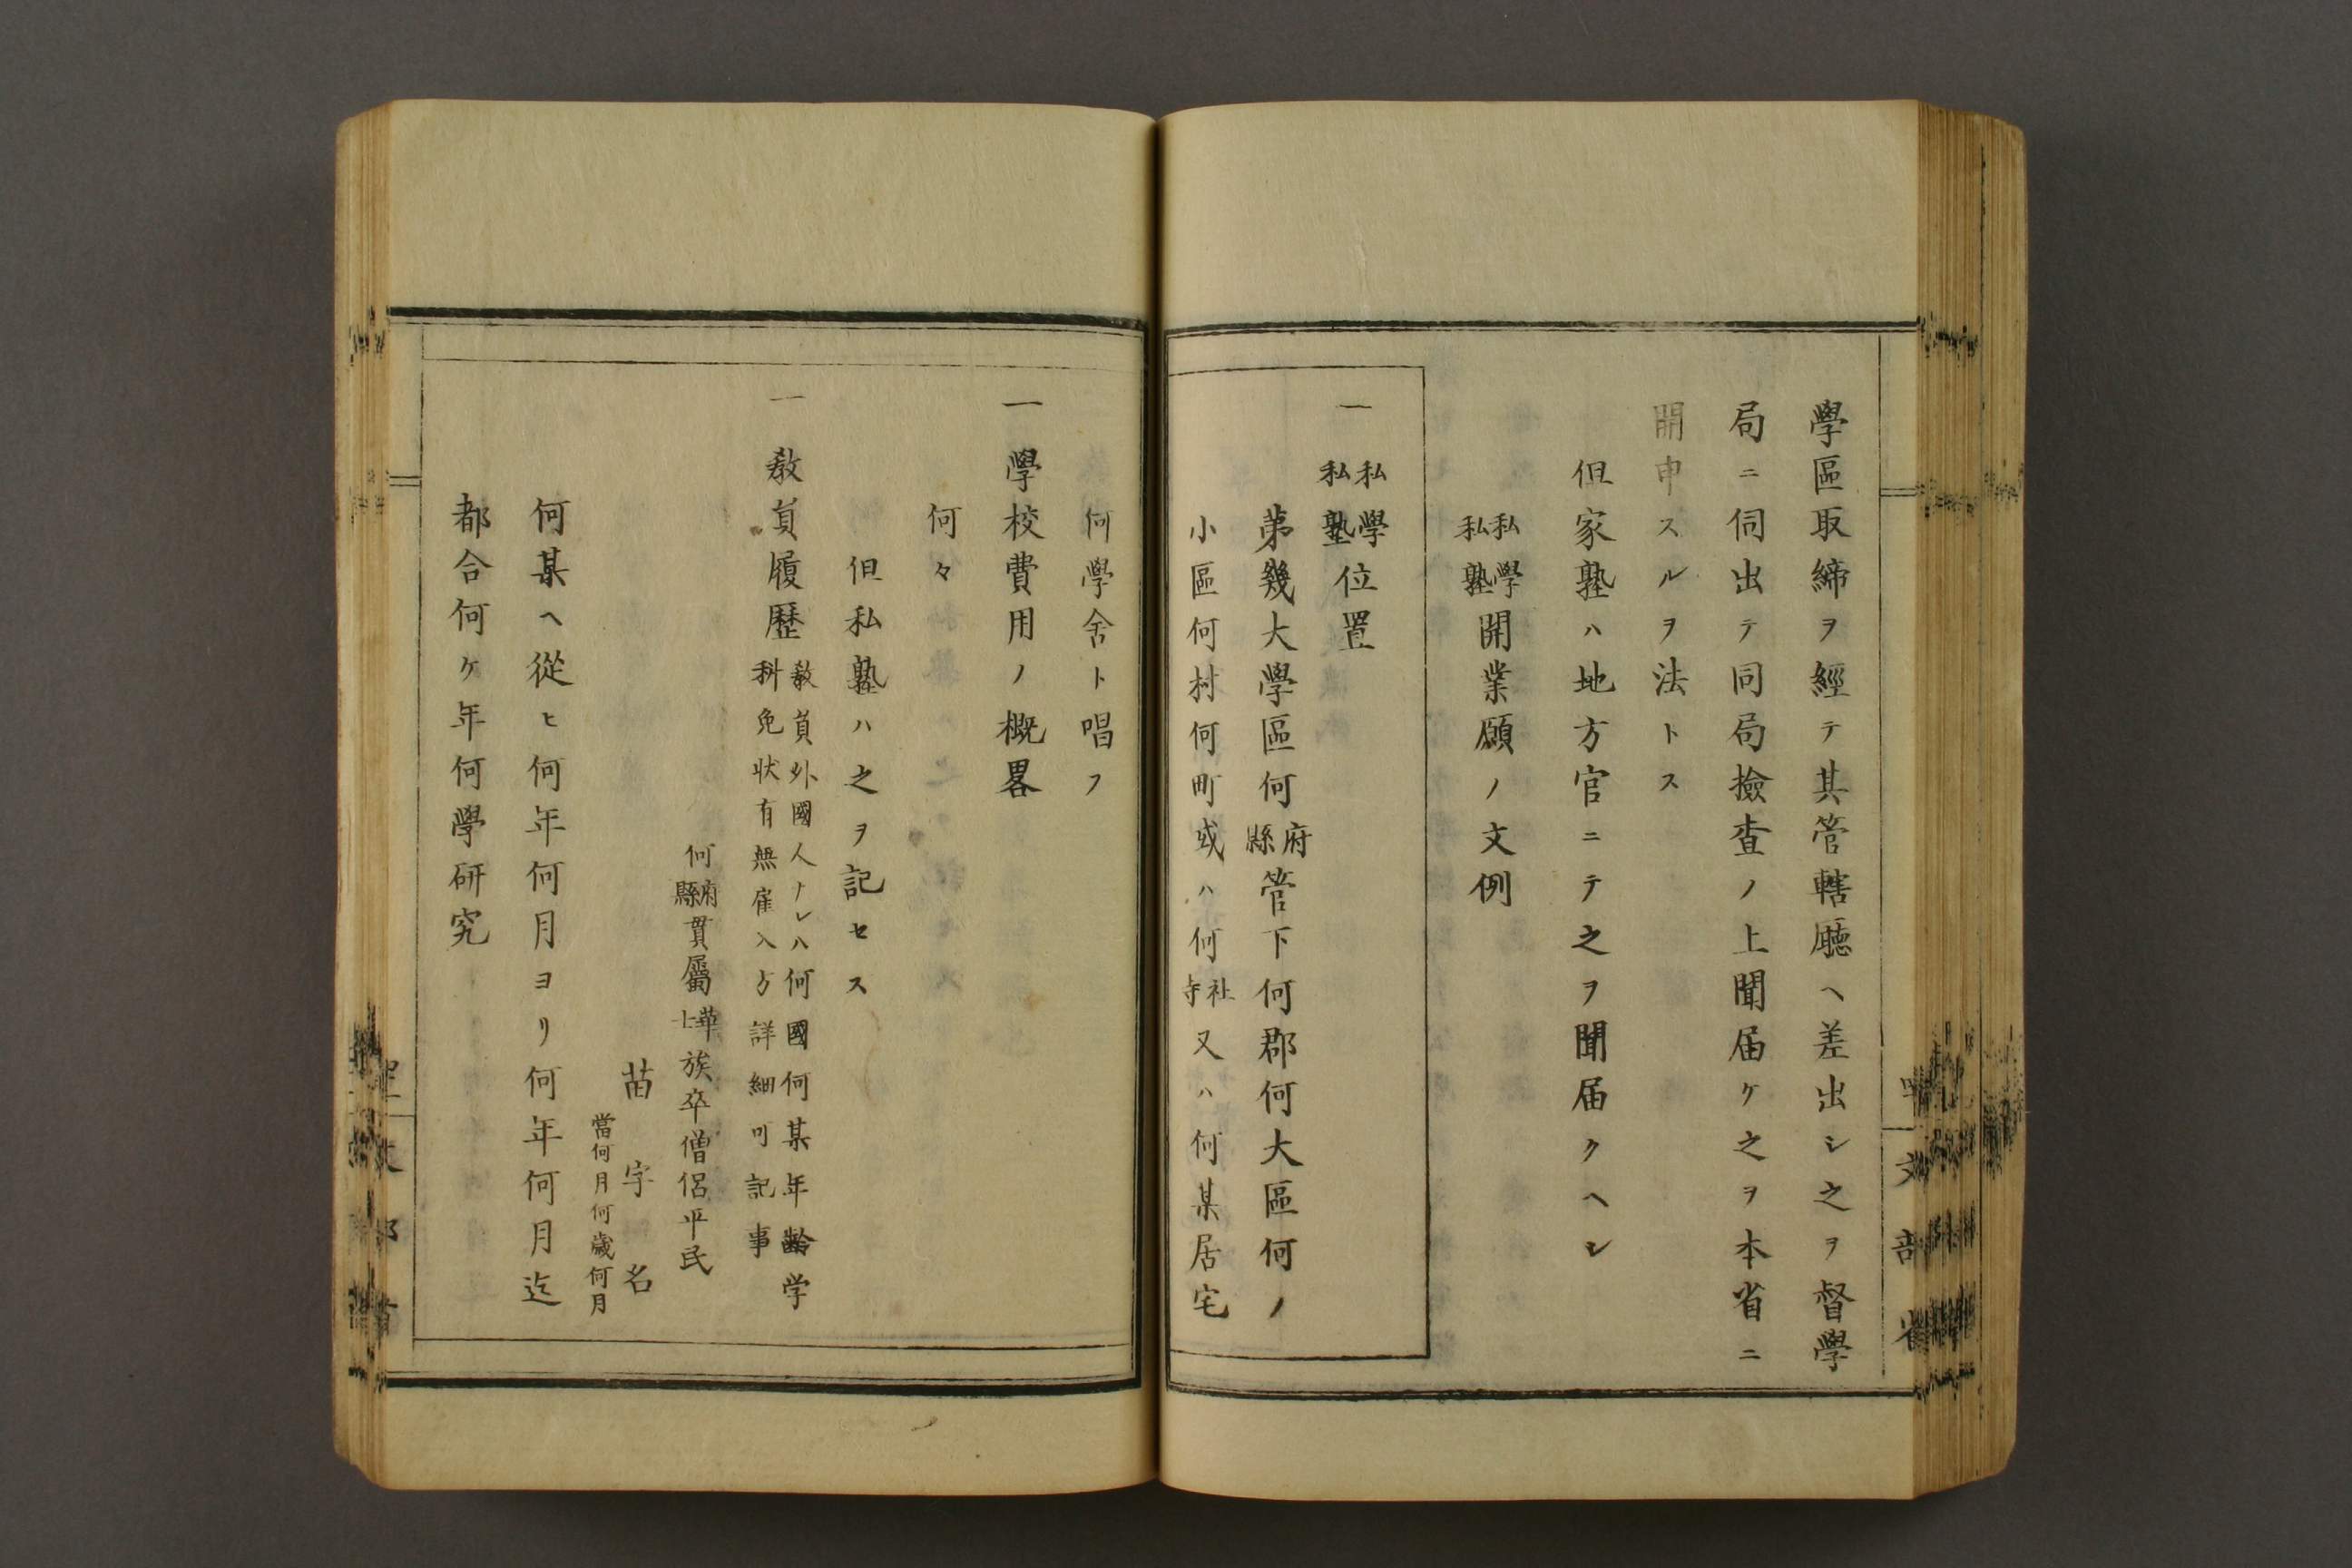 學區取締ヲ經テ其管轄廳ヘ差出シ之ヲ督學
局ニ伺出テ同局撿查ノ上聞届ケ之ヲ本省ニ
開申スルヲ法トス
但家塾ハ地方官ニテ之ヲ聞届クヘシ
私學私塾開業願ノ文例
一私學私塾位置
第幾大學區何府縣管下何郡何大區何ノ
小區何村何町或ハ何社寺又ハ何某居宅
文部省
何學舍ト唱フ
一學校費用ノ概畧
何々
但私塾ハ之ヲ記セス
一教員履歷
教員外國人ナレハ何國何某年齡学
科免状有無雇入方詳細可記事
何府縣貫屬華士族卒僧侶平民
苗字名
當何月何歲何月
何某ヘ從ヒ何年何月ヨリ何年何月迄
都合何ケ年何學研究